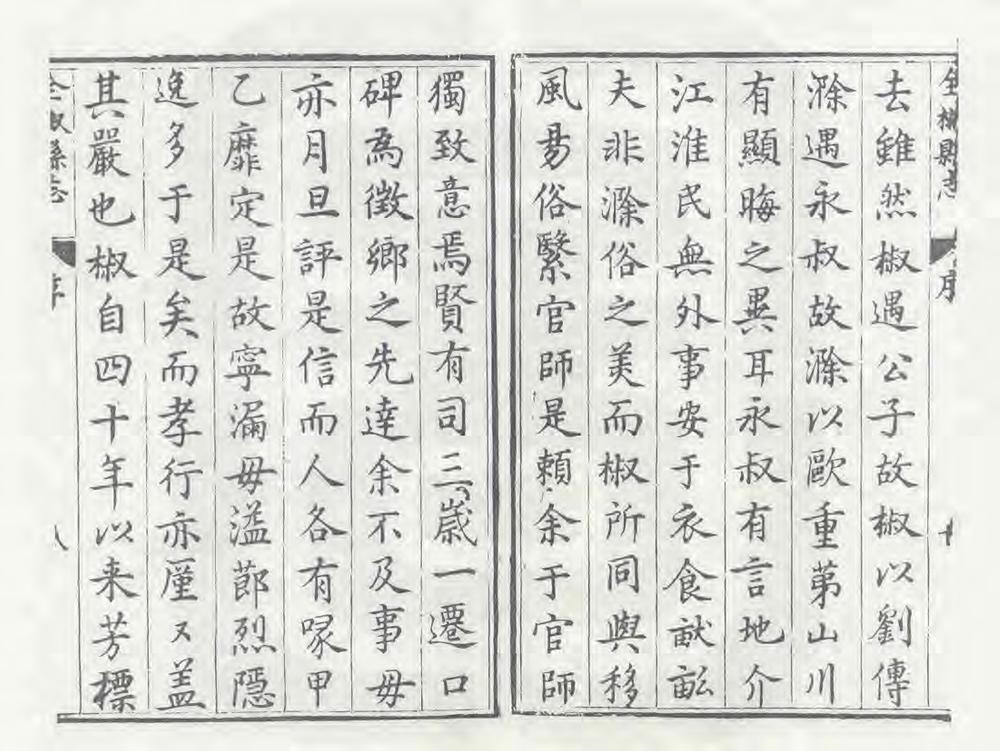 全椒縣志 序
去雖然椒遇公子故椒以劉傳
滁遇永叔故滁以歐重苐山川
有顯晦之異耳永叔有言地介
江淮民無外事安于衣食畎畝
夫非滁俗之美而椒所同與移
風昜俗繄官師是賴余于官師
獨致意焉賢有司三歲一遷口
碑為徵鄉之先達余不及事毋
亦月旦評是信而人各有喙甲
乙靡定是故寧漏毋溢莭烈隱
逸多于是矣而孝行亦厪又盖
其嚴也椒自四十年以来芳標
全椒縣志 序